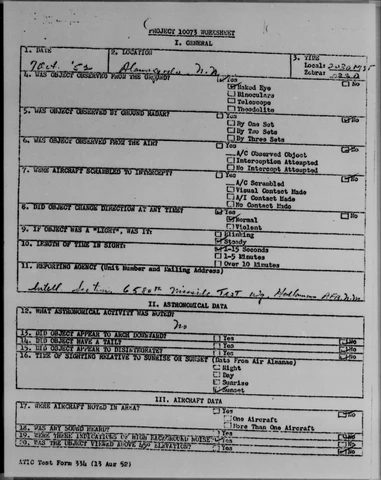 PROJECT 10073 WORKSHEET
I. GENERAL
1. DATE
2. LOCATION
3. TIME
7 Oct. '52
Alamogordo N. M.
Local:
Zebra:
4. WAS OBJECT OBSERVED FROM THE GROUND?
Yes No
Naked Eye
Binoculars
Telescope
Theodolite
5. WAS OBJECT OBSERVED BY GROUND RADAR?
Yes No
By One Set
By Two Sets
By Three Sets
6. WAS OBJECT OBSERVED FROM THE AIR?
Yes No
A/C Observed Object
Interception Attempted
No Intercept Attempted
7. WERE AIRCRAFT SCRAMBLED TO INTERCEPT?
Yes No
A/C Scrambled
Visual Contact Made
A/I Contact Made
No Contact Made
8. DID OBJECT CHANGE DIRECTION AT ANY TIME?
Yes No
Normal
Violent
9. IF OBJECT WAS A "LIGHT", WAS IT:
Blinking
Steady
10. LENGTH OF TIME IN SIGHT:
1-15 Seconds
1-5 Minutes
Over 10 Minutes
11. REPORTING AGENCY (Unit Number and Mailing Address)
Intell Section 6580th Missile Test Wg. Holloman AFB, N.M.
II. ASTRONOMICAL DATA
12. WHAT ASTRONOMICAL ACTIVITY WAS NOTED?
No
13. DID OBJECT APPEAR TO ARCH DOWNWARD?
Yes No
14. DID OBJECT HAVE A TAIL?
Yes No
15. DID OBJECT APPEAR TO DISINTEGRATE?
Yes No
16. TIME OF SIGHTING RELATIVE TO SUNRISE OR SUNSET (Data From Air Almanac)
Night
Day
Sunrise
Sunset
III. AIRCRAFT DATA
17. WERE AIRCRAFT NOTED IN AREA?
Yes No
One Aircraft
More Than One Aircraft
18. WAS ANY SOUND HEARD?
Yes No
19. WERE THERE INDICATIONS OF HIGH BACKGROUND NOISE?
Yes No
20. WAS THE OBJECT VIEWED ABOVE 45° ELEVATION?
Yes No
ATIC Test Form 334 (13 Aug 52)